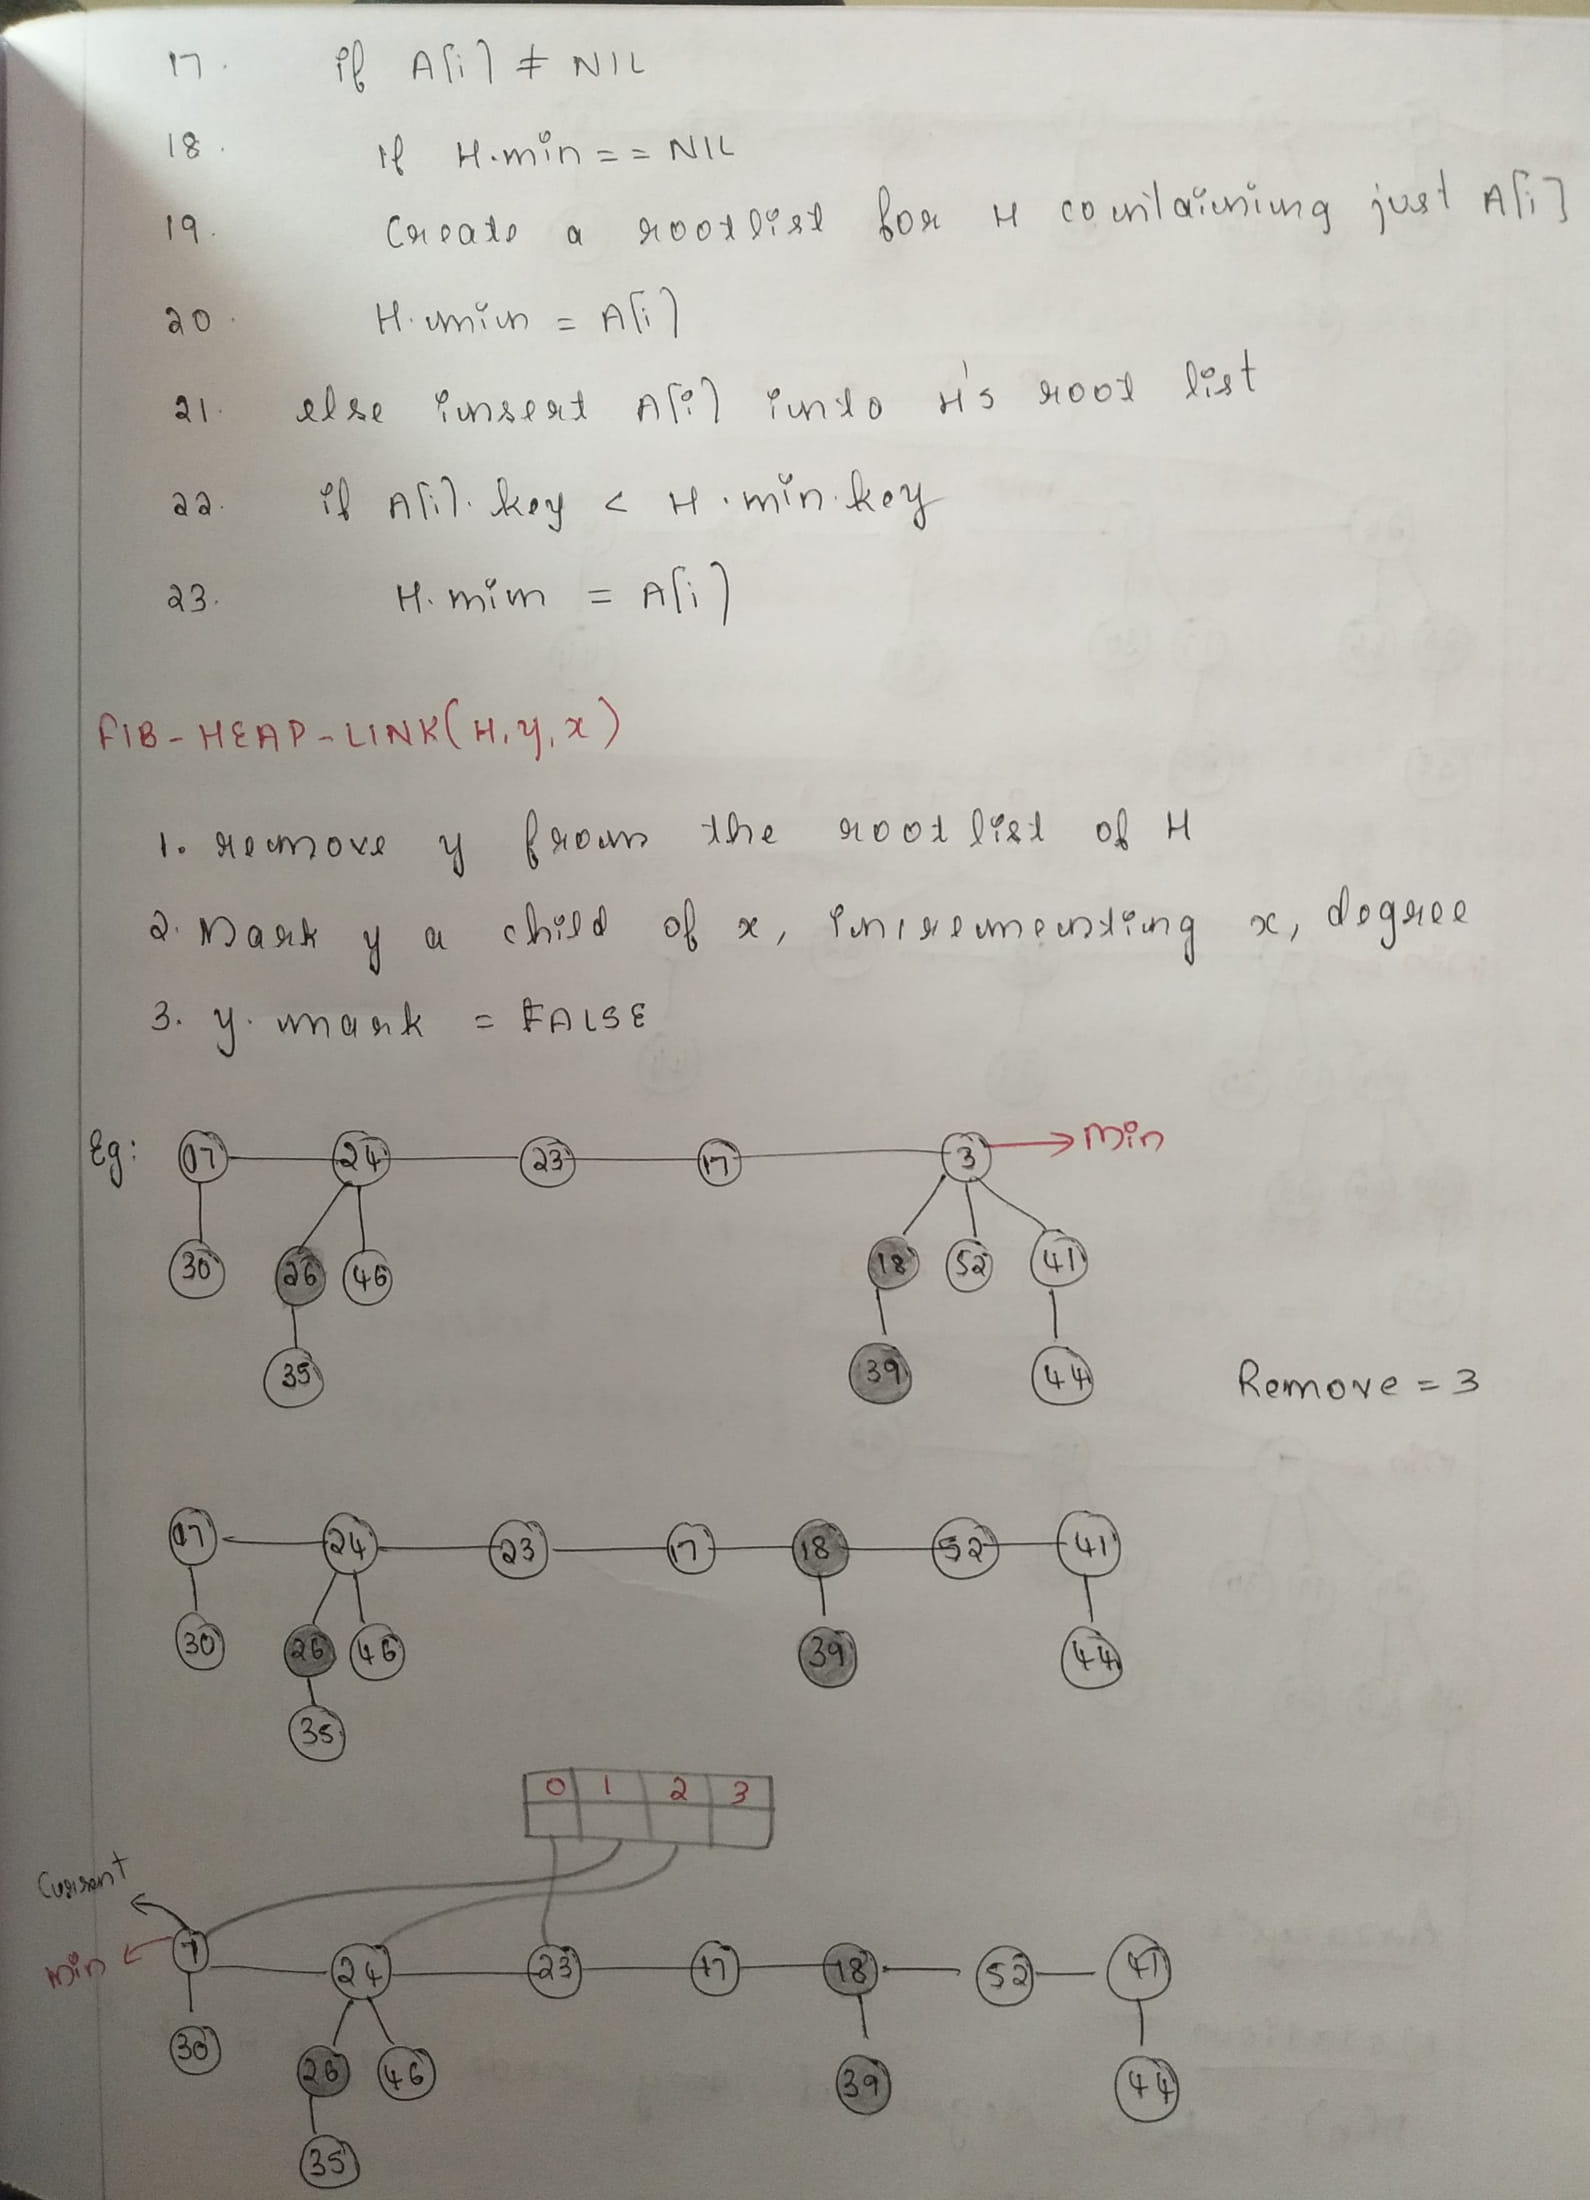 17. if A[i] ≠ NIL
18. if H.min == NIL
19. Create a rootlist for H containing just A[i]
20. H.min = A[i]
21. else insert A[i] into H's root list
22. if A[i].key < H.min.key
23. H.min = A[i]
FIB-HEAP-LINK(H,y,x)
1. remove y from the root list of H
2. Mark y a child of x, incrementing x, degree
3. y.mark = FALSE
Eg: 07 24 23 17 3 → Min
30 26 46 18 52 41
35 39 44
Remove = 3
07 24 23 17 18 52 41
30 26 46 39 44
35
0 1 2 3
Current
Min 7 24 23 17 18 52 41
30 26 46 39 44
35